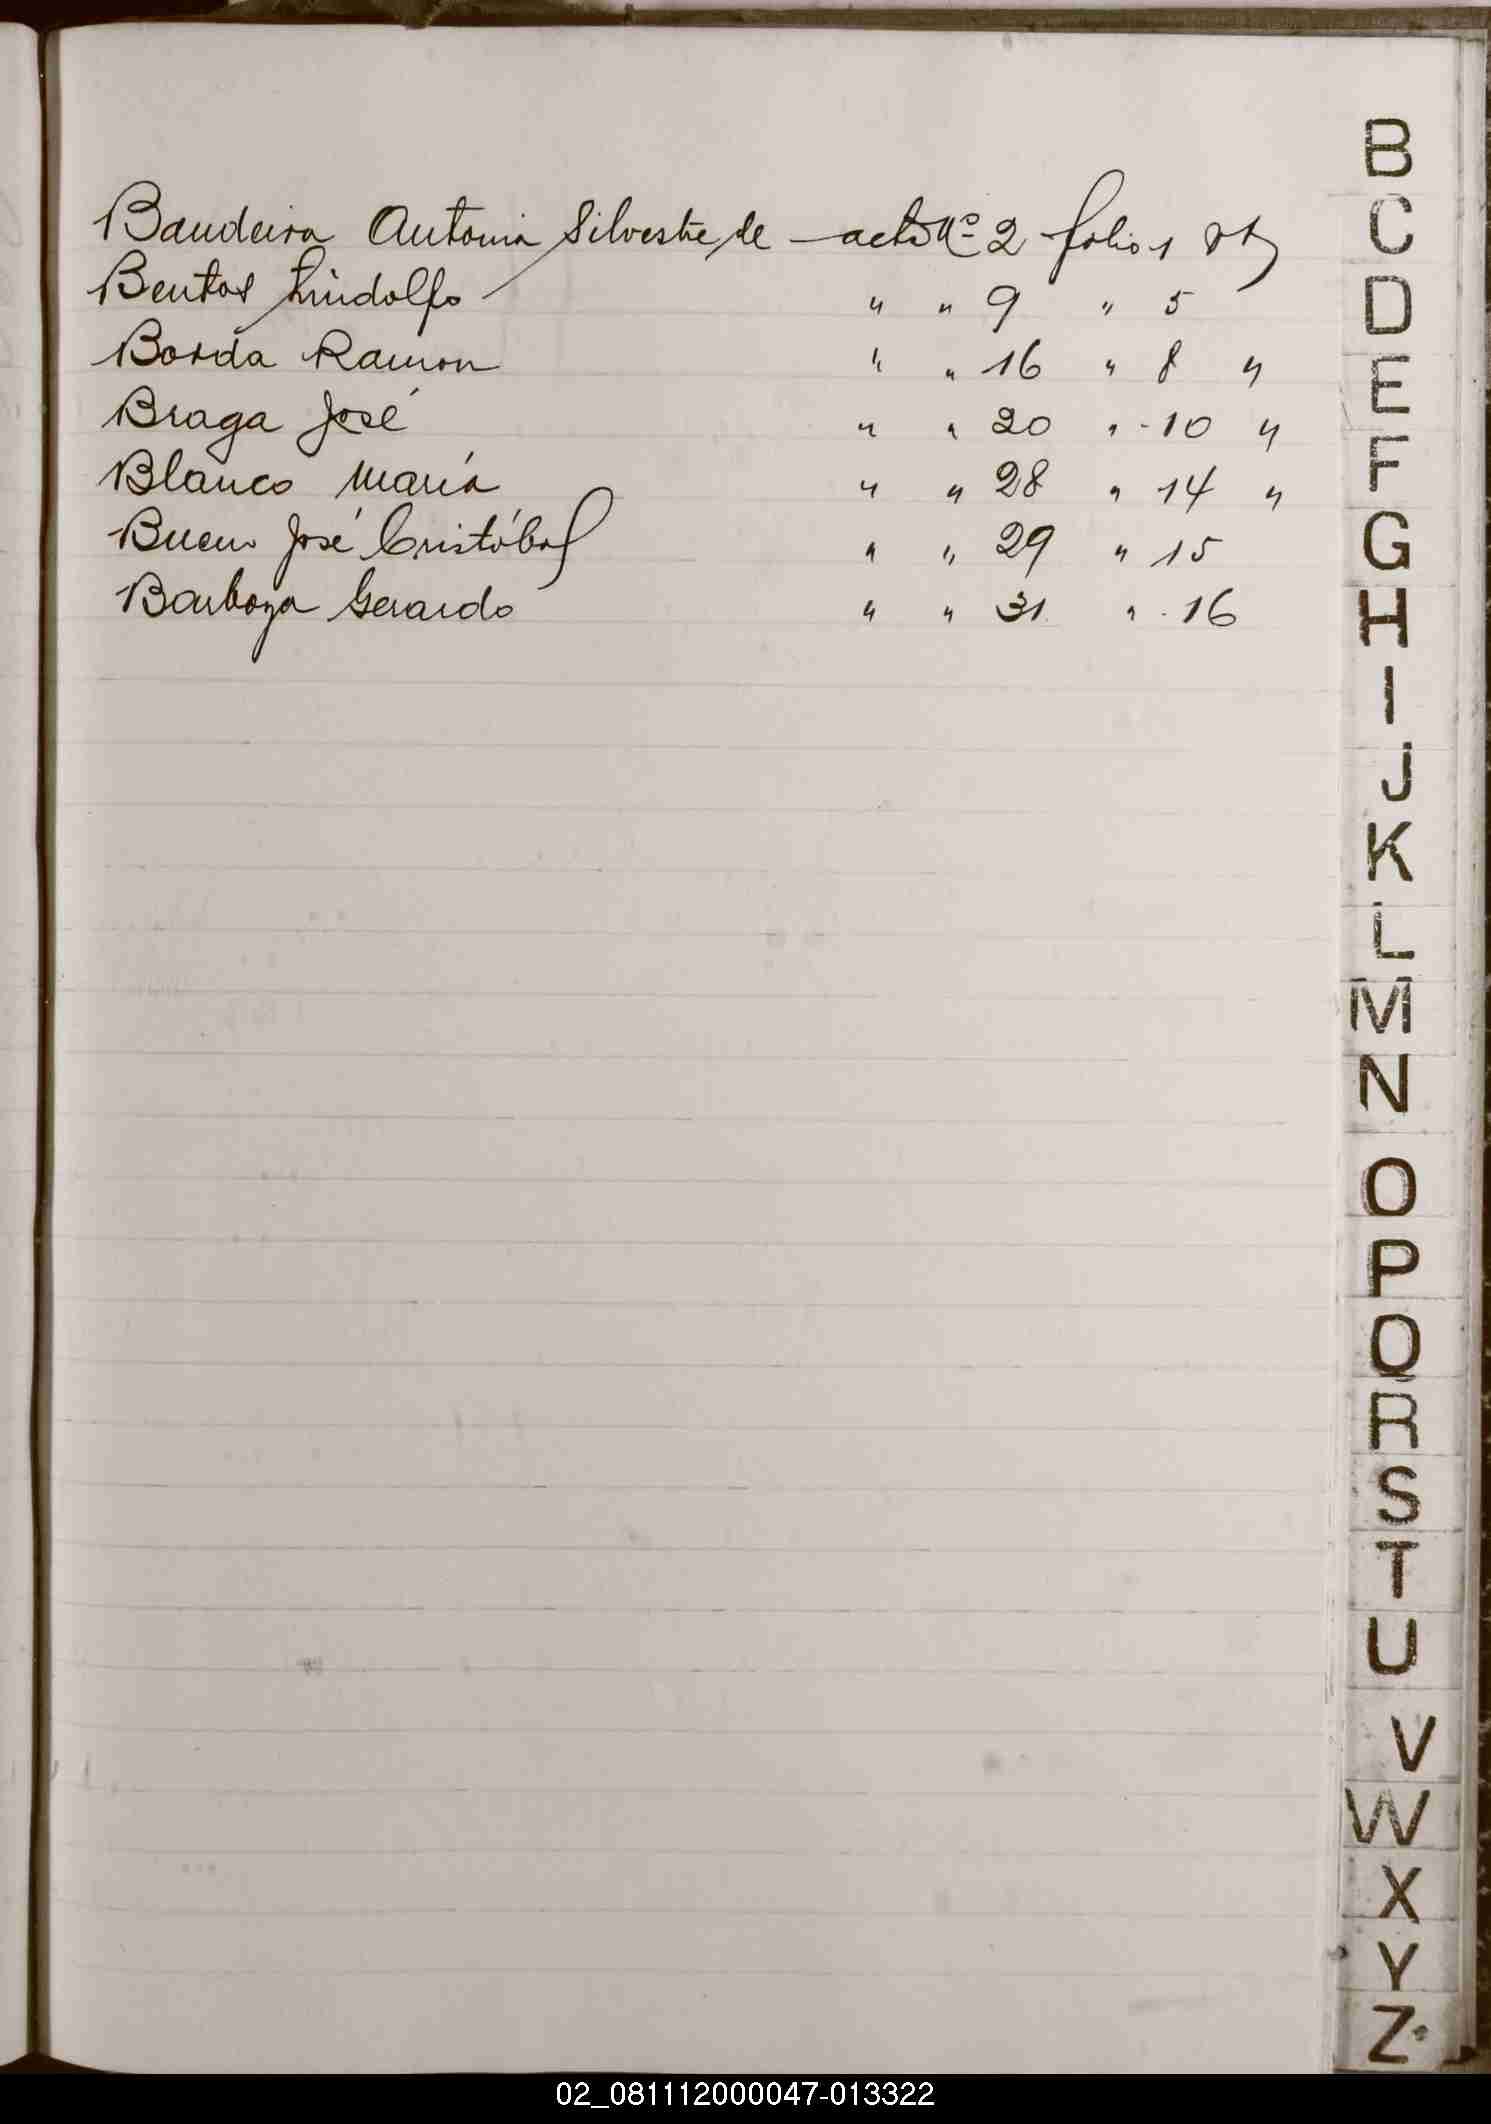 Bandeira Antonia Silvestre de — acta Nº 2 folio 1 vto
Bentos Lindolfo " " 9 " 5
Borda Ramon " " 16 " 8 "
Braga José " " 20 " 10 "
Blanco María " " 28 " 14 "
Bueno José Cristóbal " " 29 " 15
Barboza Gerardo " " 31 " 16
B
C
D
E
F
G
H
I
J
K
L
M
N
O
P
Q
R
S
T
U
V
W
X
Y
Z
02_081112000047-013322